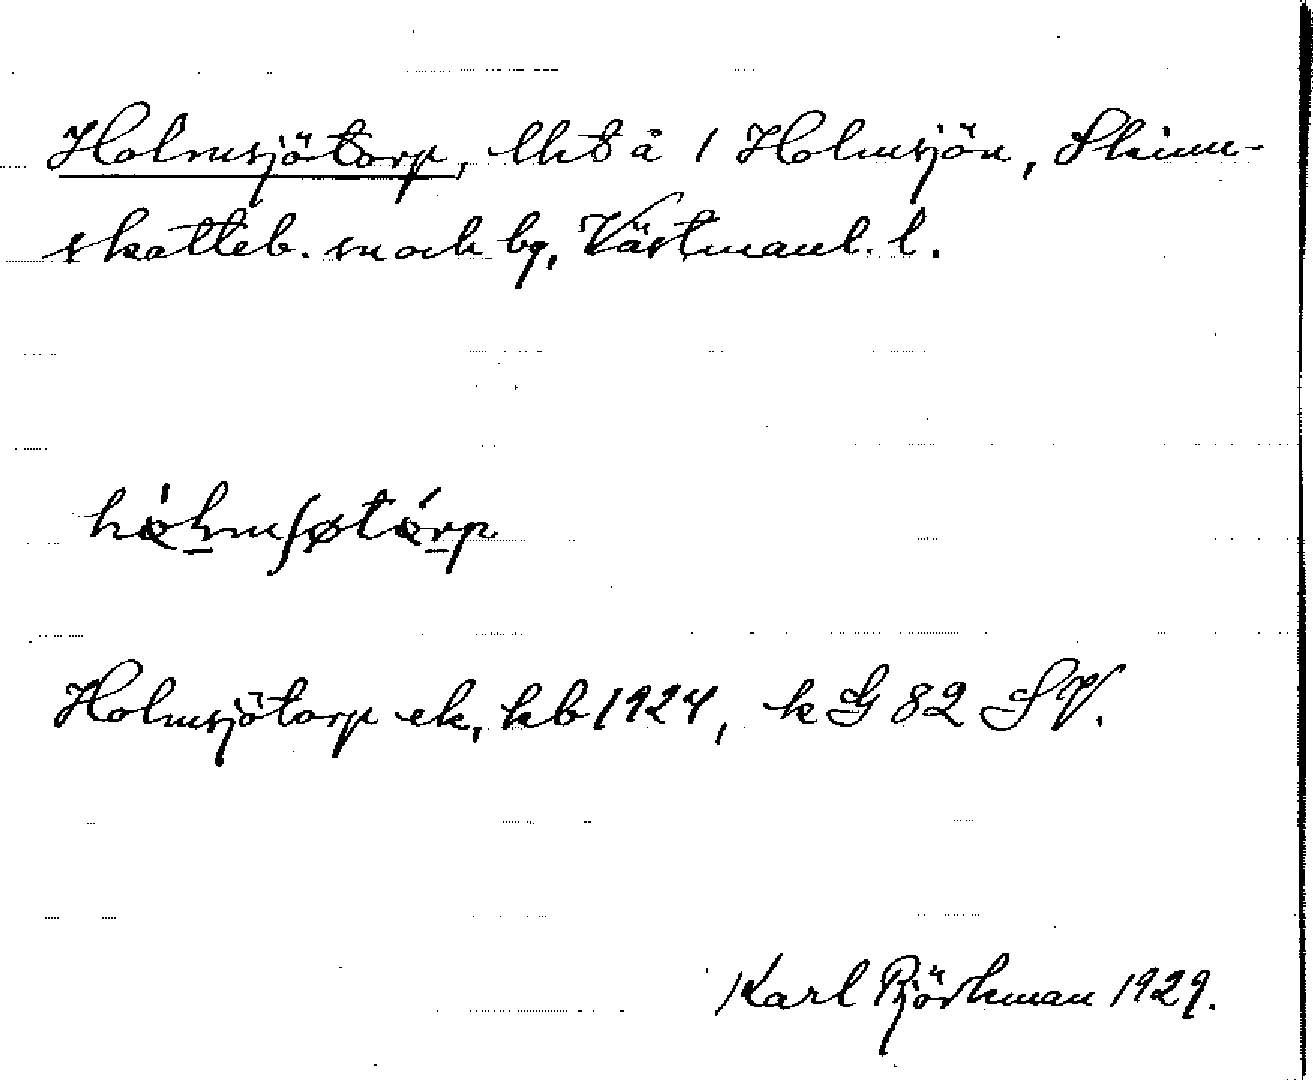 Holmsjötorp, lht å 1 Holmsjön, Skinn-
skatteb. sn och bg, Västmanl. l.
hólmʃøtórp
Holmsjötorp ek, kb 1924, k G 82 SV.
Karl Björkman 1929.